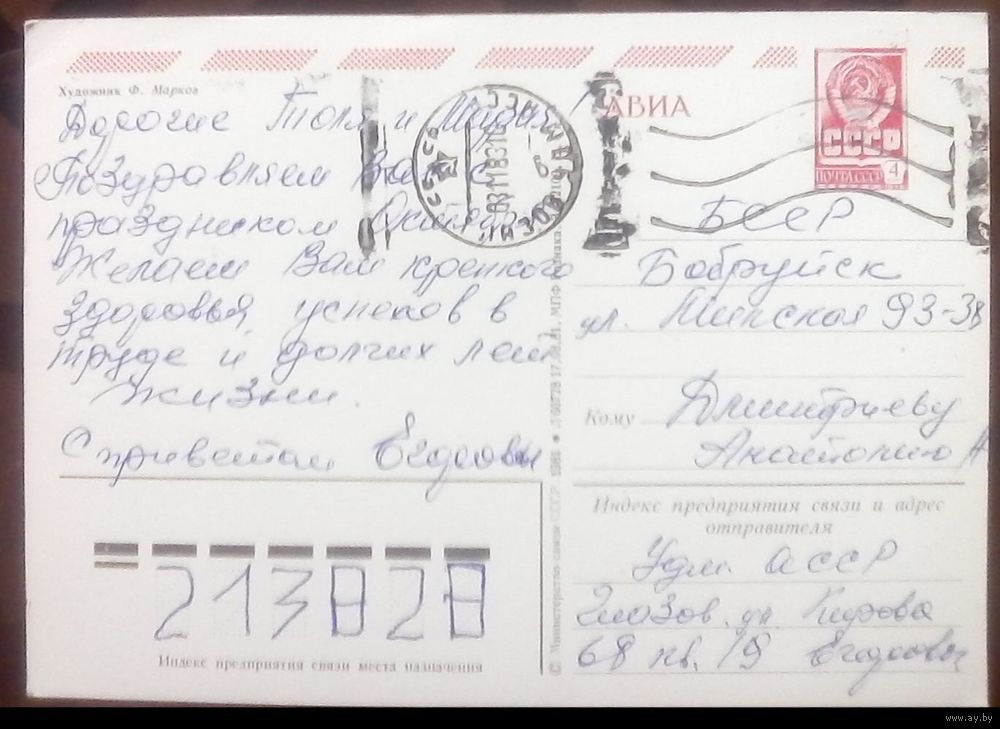 Художник Ф. Марков
АВИА
СССР
ПОЧТА СССР
4
Дорогие Толя и
Поздравляем Вас с
праздником Октября
Желаем Вам крепкого
здоровья, успехов в
труде и долгих лет
жизни.
С приветом
БССР
Бобруйск
ул. Минская 93-38
Кому Дмитриеву
Анатолию А
Индекс предприятия связи и адрес
отправителя
Удм. АССР
Глазов ул. Кирова
68 кв. 19
213828
Индекс предприятия связи места назначения
© Министерство связи СССР.
www.ay.by